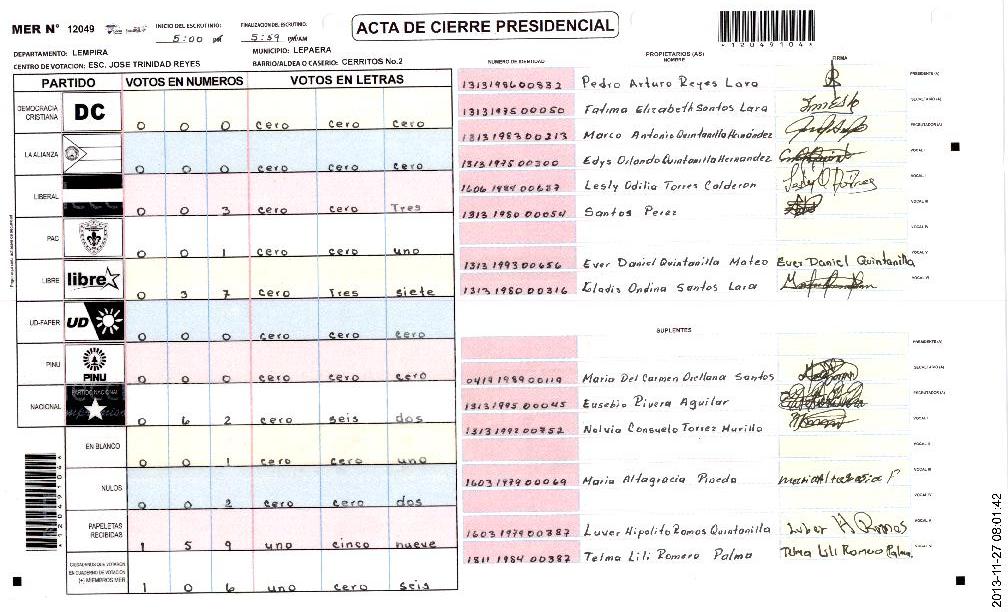 MER N° 12049
INICIO DEL ESCRUTINIO:
5:00 pm
FINALIZACION DEL ESCRUTINIO:
5:59 pm/AM
ACTA DE CIERRE PRESIDENCIAL
*12049104*
DEPARTAMENTO: LEMPIRA
MUNICIPIO: LEPAERA
CENTRO DE VOTACION: ESC. JOSE TRINIDAD REYES
BARRIO/ALDEA O CASERIO: CERRITOS No.2
PARTIDO VOTOS EN NUMEROS VOTOS EN LETRAS
DEMOCRACIA CRISTIANA DC 0 0 0 cero cero cero
LA ALIANZA 0 0 0 cero cero cero
LIBERAL 0 0 3 cero cero Tres
PAC 0 0 1 cero cero uno
LIBRE libre 0 3 7 cero Tres siete
UD-FAPER UD 0 0 0 cero cero cero
PINU PINU 0 0 0 cero cero cero
NACIONAL PARTIDO NACIONAL 0 6 2 cero seis dos
EN BLANCO 0 0 1 cero cero uno
NULOS 0 0 2 cero cero dos
PAPELETAS RECIBIDAS 1 5 9 uno cinco nueve
CIUDADANOS QUE VOTARON EN CUADERNO DE VOTACION (+) MIEMBROS MER 1 0 6 uno cero seis
*12049104*
PROPIETARIOS (AS)
NUMERO DE IDENTIDAD NOMBRE FIRMA
1313198600832 Pedro Arturo Reyes Lara PRESIDENTE (A)
1313197500050 Fatima Elizabeth Santos Lara SECRETARIO (A)
1313198300213 Marco Antonio Quintanilla Hernández ESCRUTADOR (A)
1313197500300 Edys Orlando Quintanilla Hernandez VOCAL I
1606198400687 Lesly Odilia Torres Calderon Lesly O Torres
1313198000054 Santos Perez VOCAL III
VOCAL IV
1313199300656 Ever Daniel Quintanilla Mateo Ever Daniel Quintanilla VOCAL V
1313198000316 Gladis Ondina Santos Lara VOCAL VI
SUPLENTES
PRESIDENTE (A)
0419198900119 Maria Del Carmen Orellana Santos SECRETARIO (A)
1313199500045 Eusebio Rivera Aguilar ESCRUTADOR (A)
1313199200752 Nolvia Consuelo Torrez Murillo VOCAL I
VOCAL II
1603197900069 Maria Altagracia Pineda Maria Altagracia P VOCAL III
VOCAL IV
1603197900387 Luver Hipolito Ramos Quintanilla Luber H Ramos VOCAL V
1811198400382 Telma Lili Romero Palma Telma Lili Romero Palma
2013-11-27 08:01:42